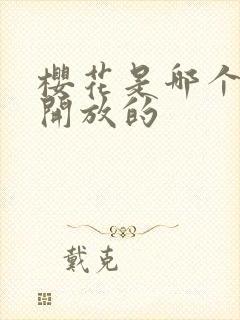 櫻花是哪个
開放的
戴克